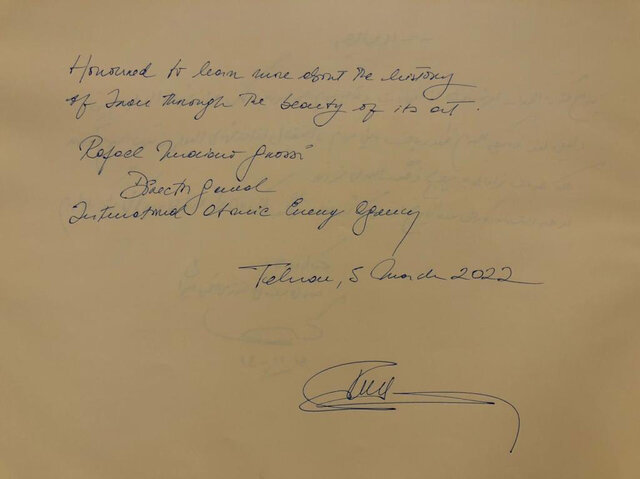 Honoured to learn more about the history
of Iran through the beauty of its art.
Rafael Mariano Grossi
Director General
International Atomic Energy Agency
Tehran, 5 March 2022